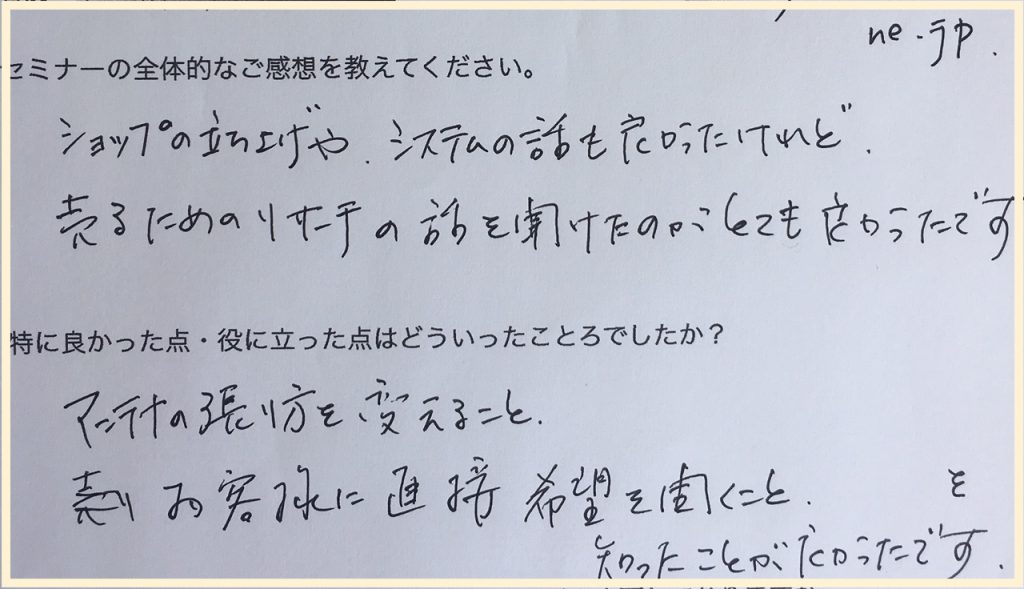 ne.jp.
セミナーの全体的なご感想を教えてください。
ショップの立ち上げや、システムの話も良かったけれど、
売るためのリサーチの話を聞けたのがとても良かったです
特に良かった点・役に立った点はどういったことろでしたか？
アンテナの張り方を変えること、
お客様に直接希望を聞くこと、を
知ったことが良かったです。